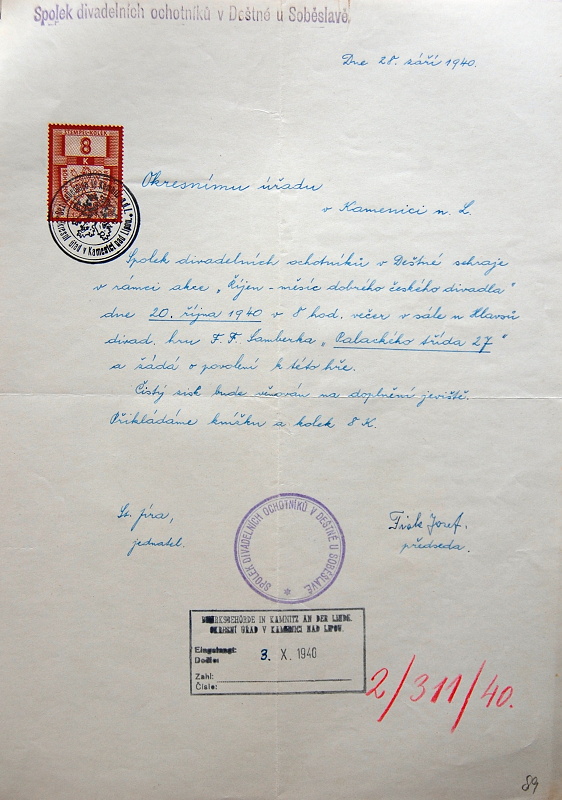 Spolek divadelních ochotníků v Deštné u Soběslavě.
Dne 28. září 1940.
STEMPEL-KOLEK
8
K
Okresnímu úřadu
v Kamenici n. L.
Okresní úřad v Kamenici nad Lipou
Spolek divadelních ochotníků v Deštné sehraje
v rámci akce „Říjen - měsíc dobrého českého divadla"
dne 20. října 1940 v 8 hod. večer v sále u Hlavsů
divad. hru F. F. Šamberka „Palackého třída 27"
a žádá o povolení k této hře.
Čistý zisk bude věnován na doplnění jeviště.
Přikládáme knížku a kolek 8 K.
St. Jíra,
jednatel.
SPOLEK DIVADELNÍCH OCHOTNÍKŮ V DEŠTNÉ U SOBĚSLAVĚ.
Fisk Josef.
předseda.
BEZIRKSBEHÖRDE IN KAMNITZ AN DER LINDE.
OKRESNÍ ÚŘAD V KAMENICI NAD LIPOU.
Eingelangt:
Došlo:
3. X. 1940
Zahl:
Číslo:
2/311/40.
89